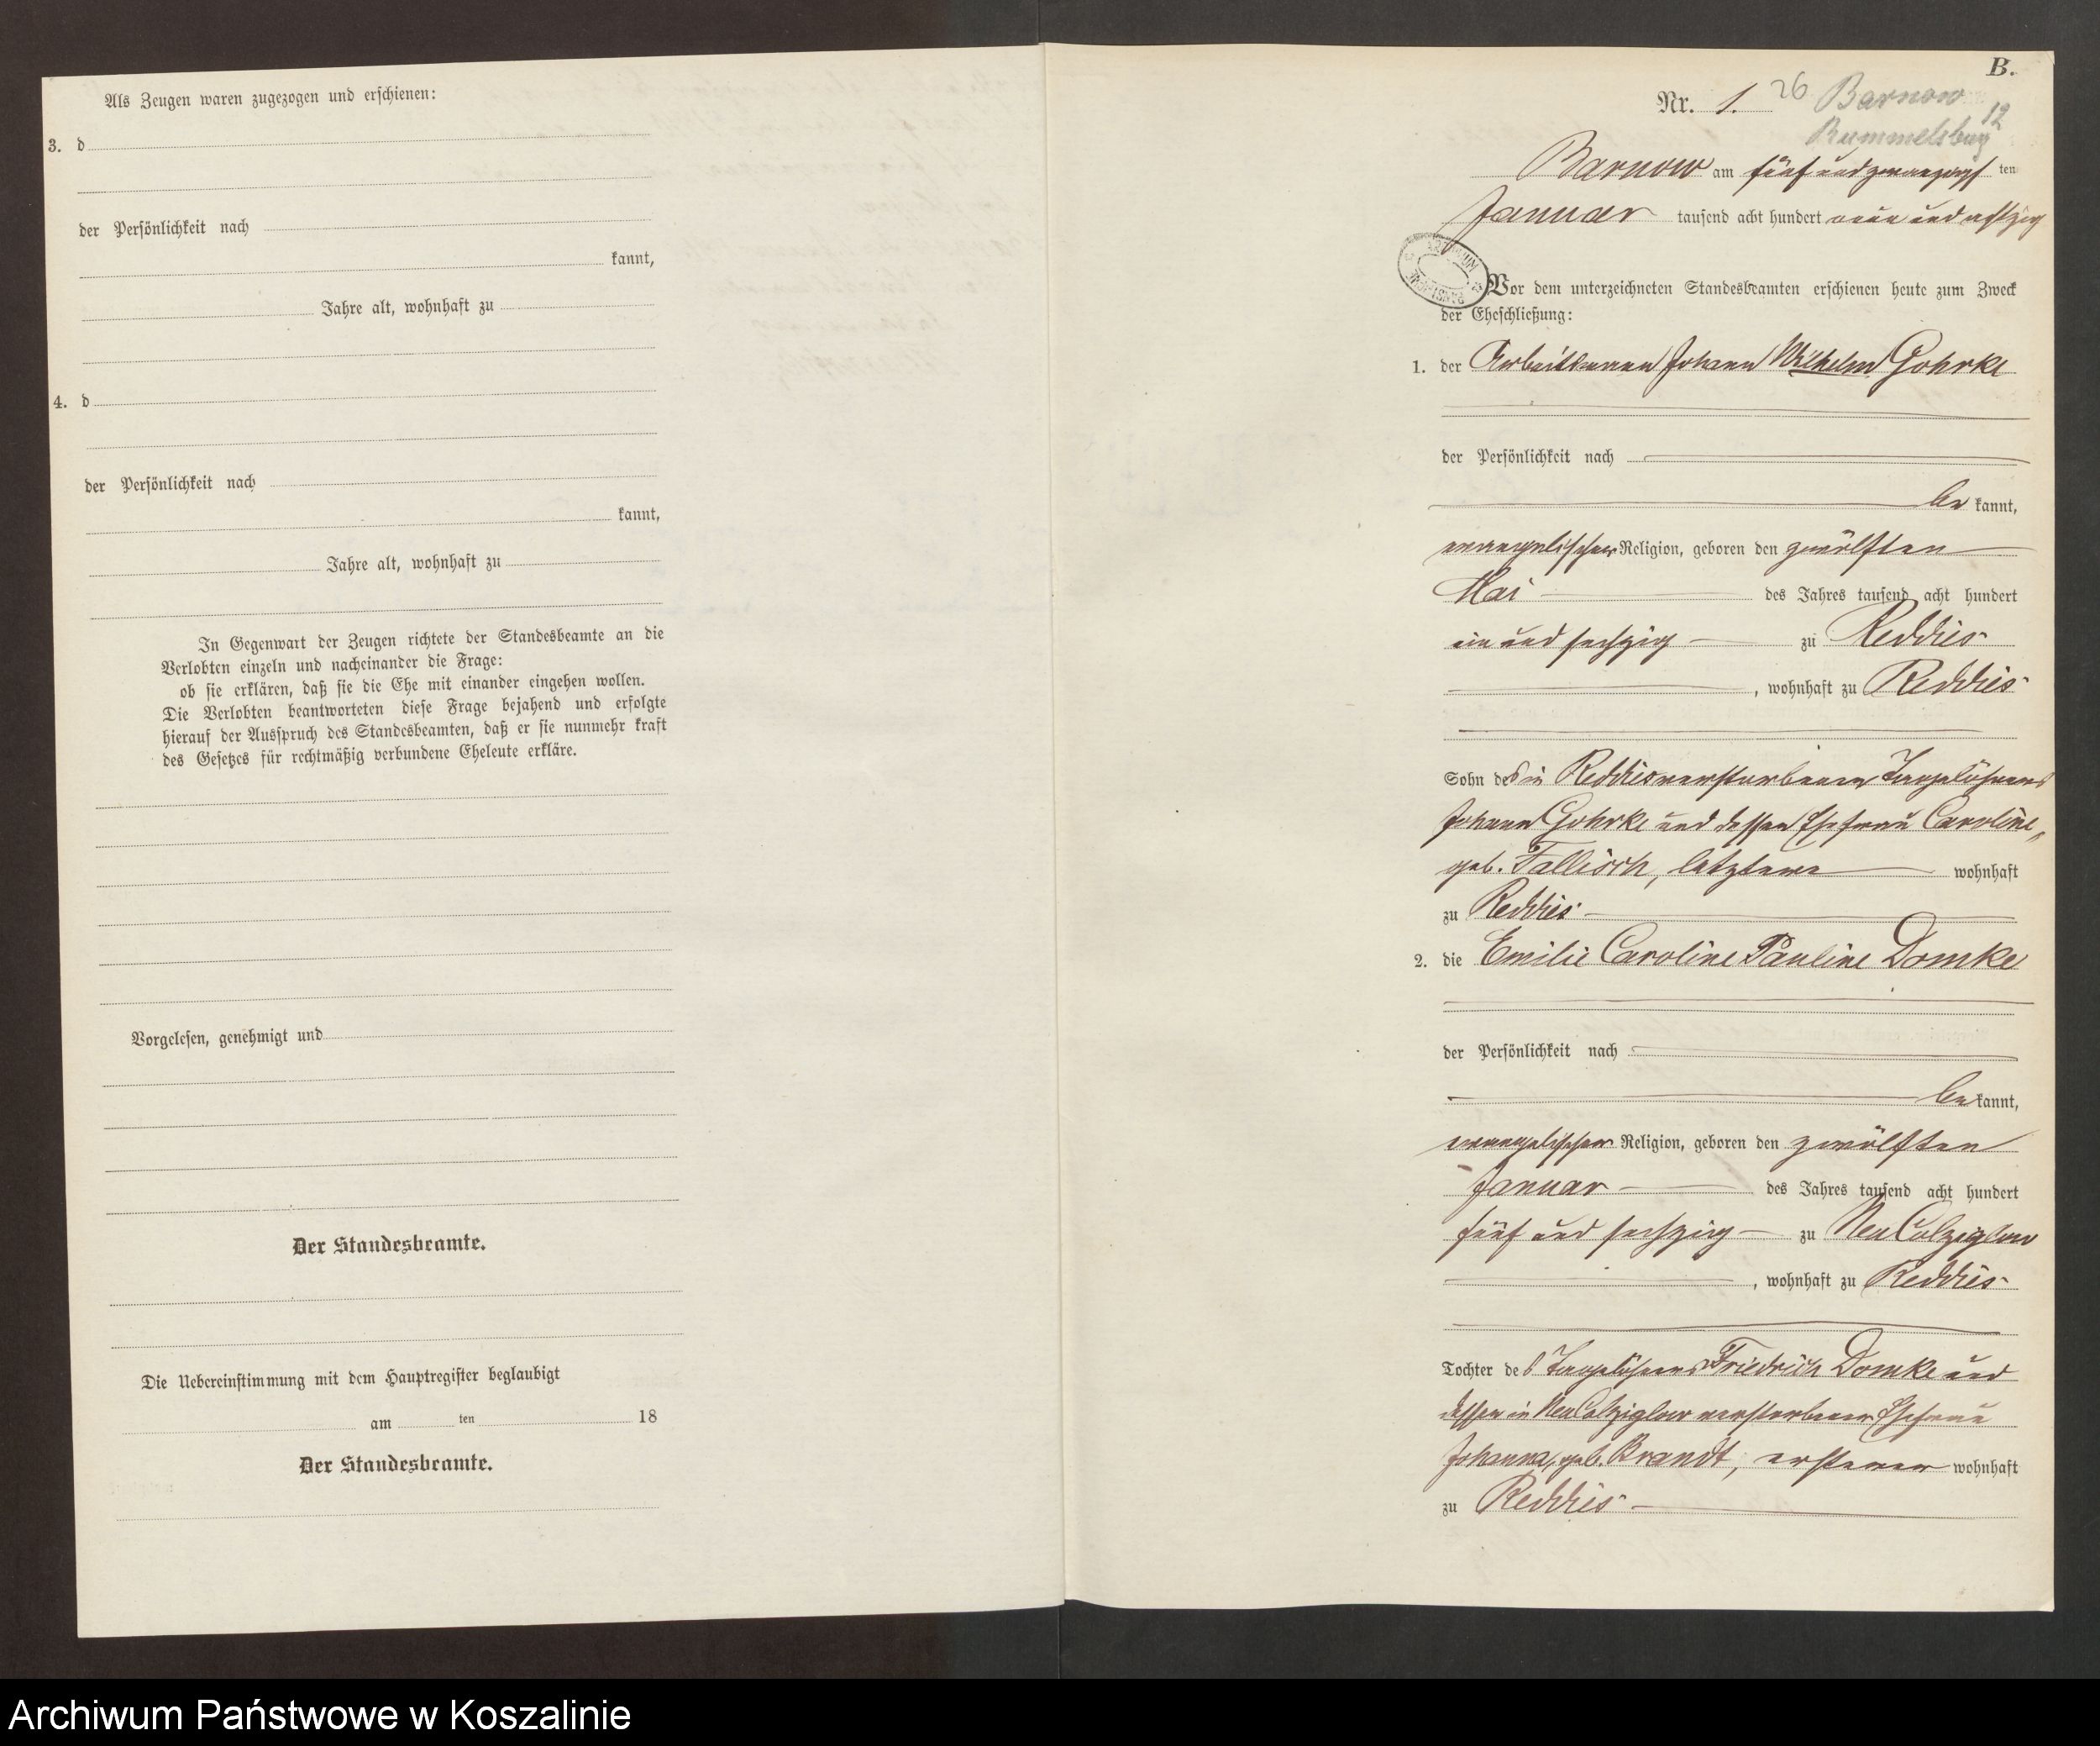 Als Zeugen waren zugezogen und erschienen:
3. d
der Persönlichkeit nach
kannt,
Jahre alt, wohnhaft zu
4. d
der Persönlichkeit nach
kannt,
Jahre alt, wohnhaft zu
In Gegenwart der Zeugen richtete der Standesbeamte an die
Verlobten einzeln und nacheinander die Frage:
ob sie erklären, daß sie die Ehe mit einander eingehen wollen.
Die Verlobten beantworteten diese Frage bejahend und erfolgte
hierauf der Ausspruch des Standesbeamten, daß er sie nunmehr kraft
des Gesetzes für rechtmäßig verbundene Eheleute erkläre.
Vorgelesen, genehmigt und
Der Standesbeamte.
Die Uebereinstimmung mit dem Hauptregister beglaubigt
am ten 18
Der Standesbeamte.
B.
Nr. 1. 26 Barnow
12
Rummelsburg
Barnow am fünf und zwanzigsten
Januar tausend acht hundert neun und achtzig
Vor dem unterzeichneten Standesbeamten erschienen heute zum Zweck
der Eheschließung:
1. der Arbeitsmann Johann Wilhelm Gohrke
der Persönlichkeit nach
be kannt,
evangelischer Religion, geboren den zwölften
Mai des Jahres tausend acht hundert
ein und sechzig zu Reddies
, wohnhaft zu Reddies
Sohn des in Reddies verstorbenen Tagelöhners
Johann Gohrke und dessen Ehefrau Caroline,
geb. Fallisch, letztere wohnhaft
zu Reddies
2. die Emilie Caroline Pauline Domke
der Persönlichkeit nach
be kannt,
evangelischer Religion, geboren den zwölften
Januar des Jahres tausend acht hundert
fünf und sechzig zu Neu Colziglow
, wohnhaft zu Reddies
Tochter des Tagelöhners Friedrich Domke und
dessen in Neu Colziglow verstorbenen Ehefrau
Johanna, geb. Brandt, ersterer wohnhaft
zu Reddies
Archiwum Państwowe w Koszalinie